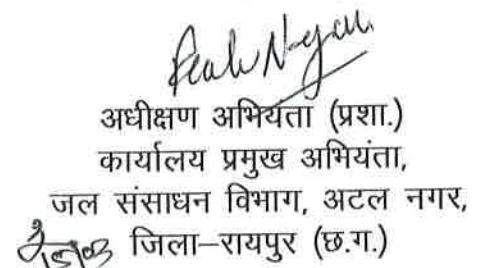 अधीक्षण अभियंता (प्रशा.)
कार्यालय प्रमुख अभियंता,
जल संसाधन विभाग, अटल नगर,
जिला–रायपुर (छ.ग.)